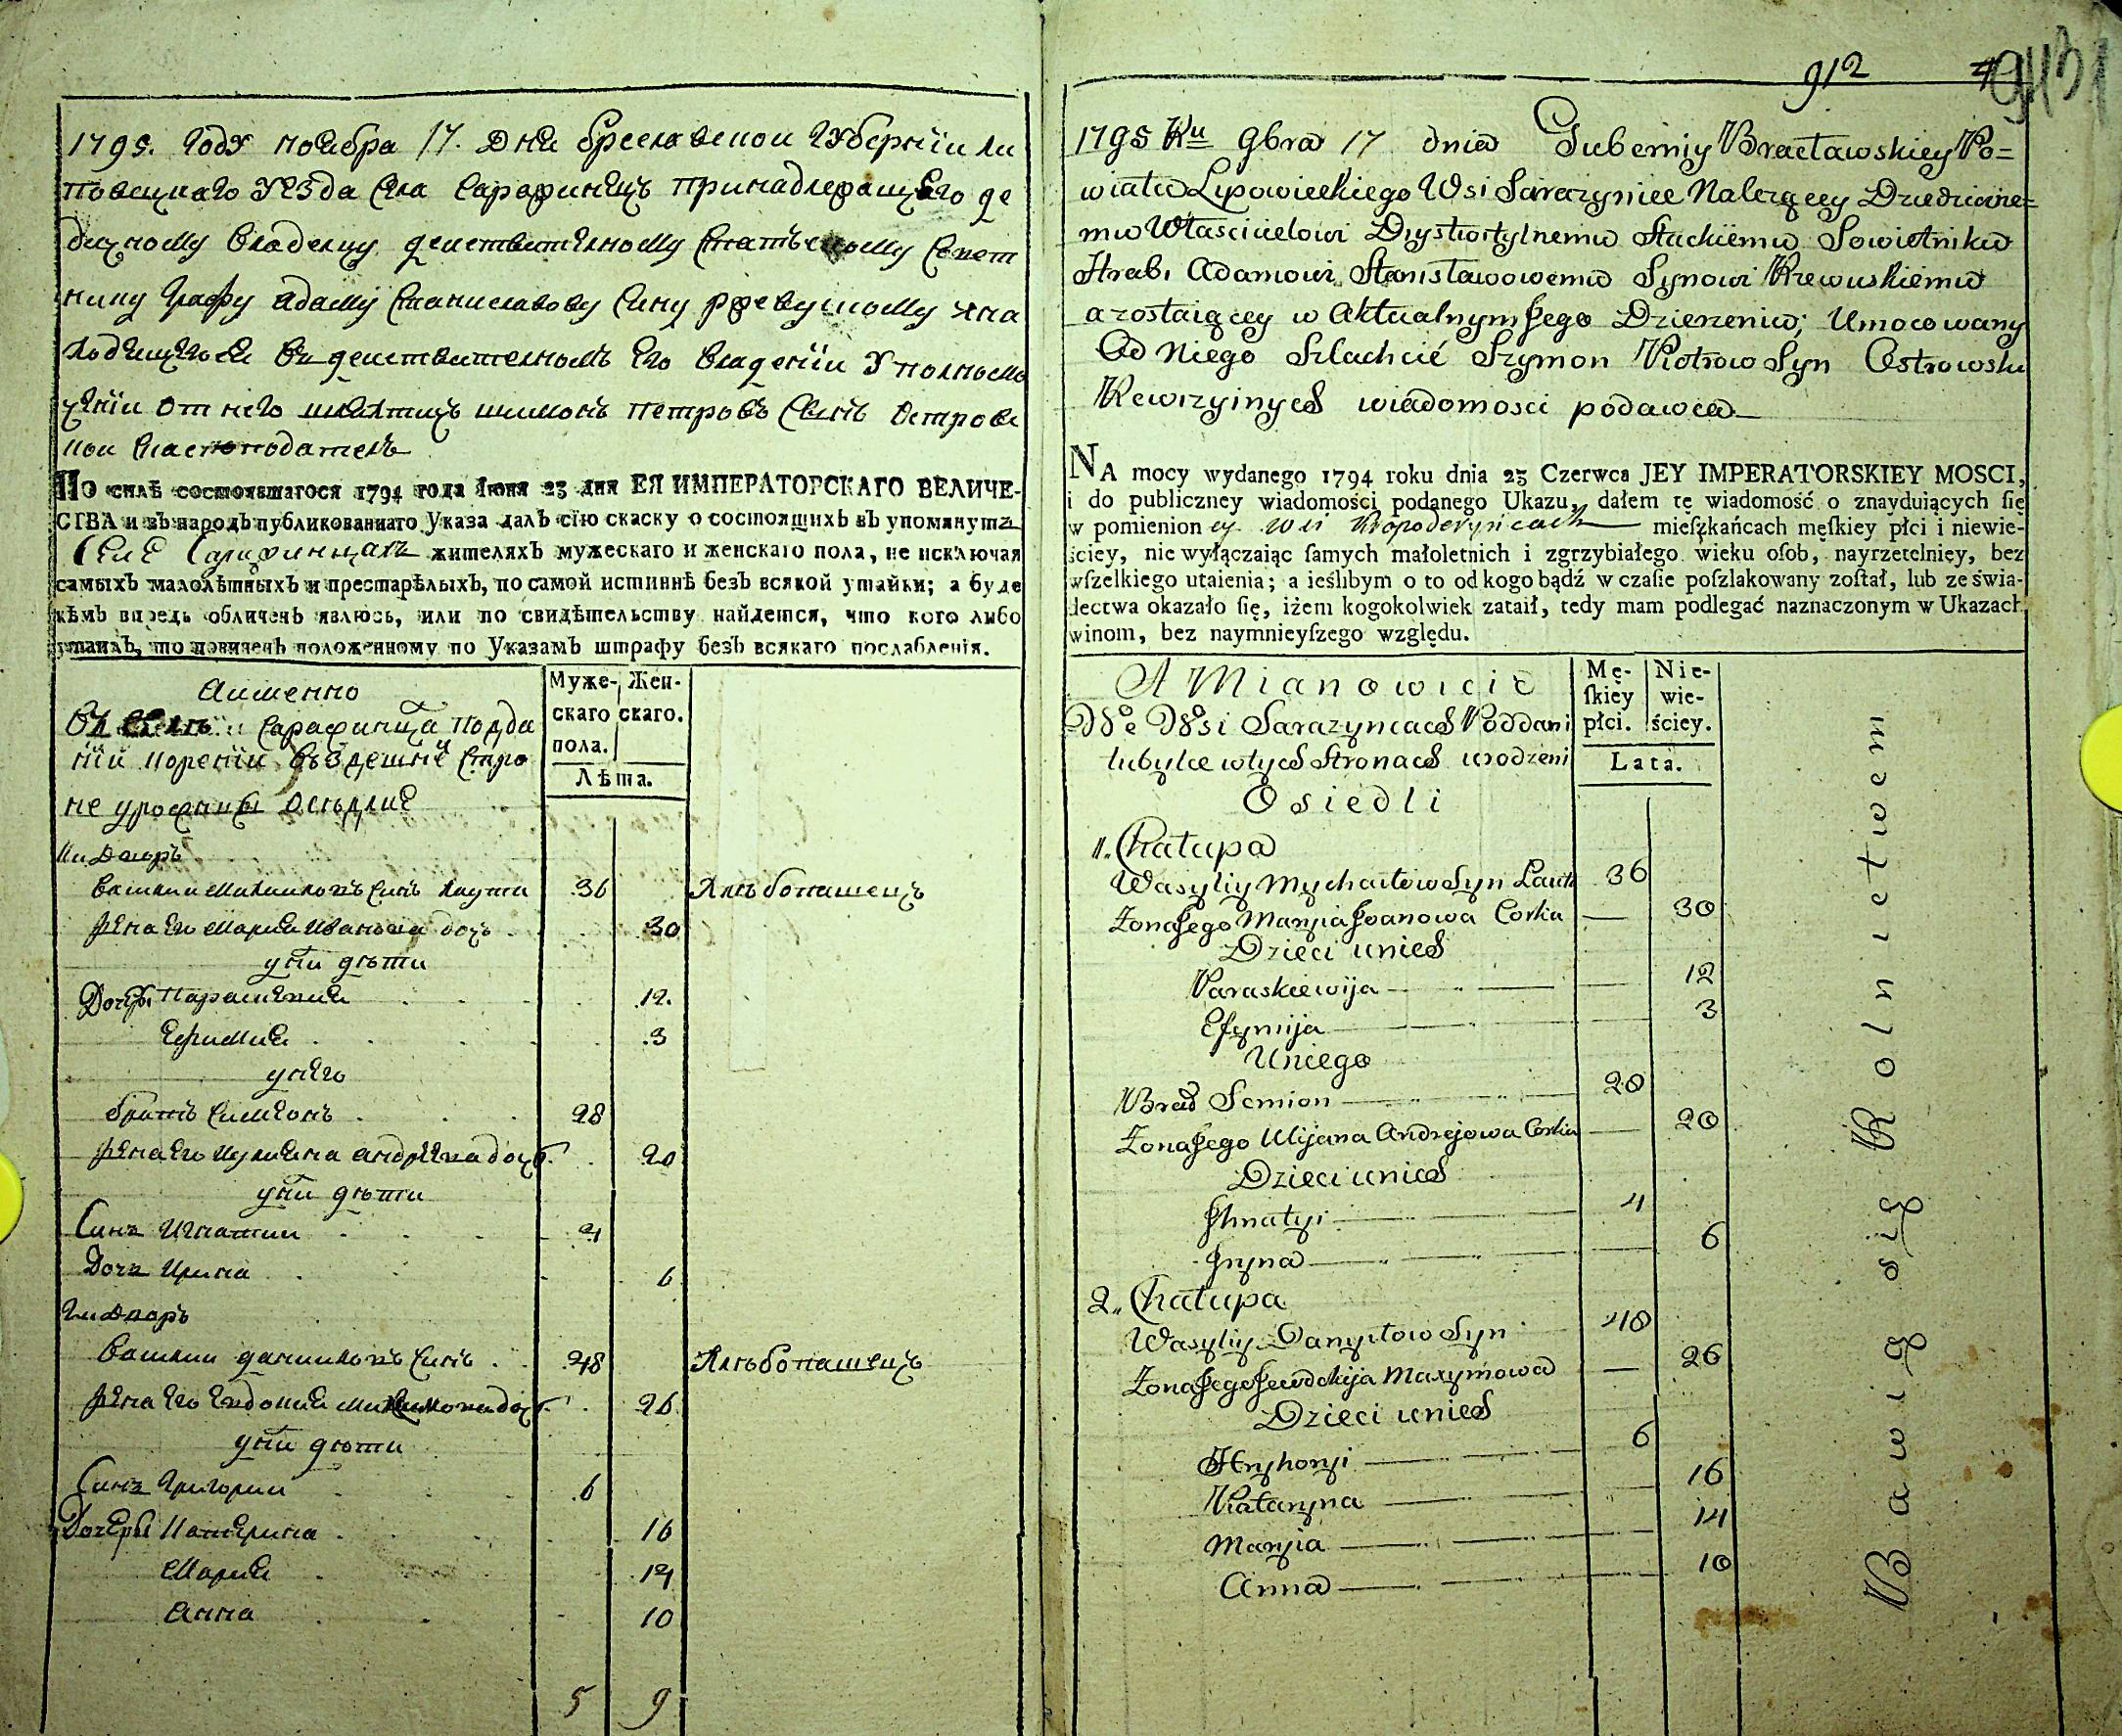 1795. году ноебра 17. дня брецлавской губернїи ли
повецкаго уезда села саражинецъ принадлежащего де
дичному владелцу действителному статьскому совет
нику графу адаму станиславову сину ржевускому
ходещегося въ действителномъ его владенїи уполномо
ченїи от него шляхтичъ шимонъ петровъ синъ островс
кои скаскоподатель
ПО силѣ состоявшагося 1794 года Іюня 23 дня ЕЯ ИМПЕРАТОРСКАГО ВЕЛИЧЕ-
СТВА и въ народъ публикованнаго Указа далъ сїю скаску о состоящихъ въ упомянута
селе саражинцахъ жителяхъ мужескаго и женскаго пола, не исключая
самыхъ малолѣтныхъ и престарѣлыхъ, по самой истиннѣ безъ всякой утайки; а буде
кѣмъ впредь обличенъ явлюсь, или по свидѣтельству найдется, что кого либо
утаилъ, то повиненъ положенному по Указамъ штрафу безъ всякаго послабленія.
аименно
саражинца подда
нїи
не урожници оседлие
Муже-скаго пола. Жен-скаго.
Лѣта.
дворъ
василии михаиловъ синъ лаута 36 хлебопашецъ
жена его мария иванова доч 30
у них дети
дочери параскевия 12.
ефимия 3
у него
братъ симеонъ 28
жена его иулияна андреева доч 20
у них дети
синъ игнатии 4
дочъ ирина 6
дворъ
василии даниловъ синъ 48 хлебопашецъ
жена его евдокия максимова доч 26
у них дети
синъ григории 6
дочери катерина 16
мария 14
анна 10
5 9
912
1795 Ku 9bra 17 dnia Guberniy Bracławskiey Po=
wiatu Lipowieckiego Wsi Sarazyniec Nalezącey Dziedziczne=
mu Włascicielowi Dystwitylnemu Stackiemu Sowietniku
Hrabi Adamowi Stanisławowemu Synowi Rzewuskiemu
a zostaiącey w Aktualnym Jego Dzierzeniu; Umocowany
Od Niego Szlachcić Szymon Piotrow Syn Ostrowski
Rewizyinych wiadomosci podawca
NA mocy wydanego 1794 roku dnia 23 Czerwca JEY IMPERATORSKIEY MOSCI,
i do publiczney wiadomości podanego Ukazu, dałem tę wiadomość o znayduiących się
w pomienion ey wsi mieſzkańcach męſkiey płci i niewie-
ściey, nie wyłączaiąc ſamych małoletnich i zgrzybiałego wieku oſob, nayrzetelniey, bez
wſzelkiego utaienia; a ieślibym o to od kogo bądź w czaſie poſzlakowany zoſtał, lub ze świa-
dectwa okazało się, iżem kogokolwiek zataił, tedy mam podlegać naznaczonym w Ukazach
winom, bez naymnieyſzego względu.
A Mianowicie
We Wsi Sarazyncach Poddani
tubylce wtych Stronach urodzeni
Osiedli
Mę-ſkiey płci. Nie-wie-ściey.
Lata.
1. Chałupa
Wasyliy Mychaiłow Syn Laut 36
Zona Jego Maryia Jwanowa Corka 30
Dzieci unich
Paraskiewija 12
Efymija 3
Uniego
Brad Semion 28
Zona Jego Ulijana Andrejowa Corka 20
Dzieci unich
Jhnatyi 4
Jryna 6
2. Chałupa
Wasyliy Danyłow Syn 48
Zona Jego Jewdokija Maxymowa 26
Dzieci unich
Hryhoryi 6
Kataryna 16
Maryia 14
Anna 10
Bawią się Rolnictwem